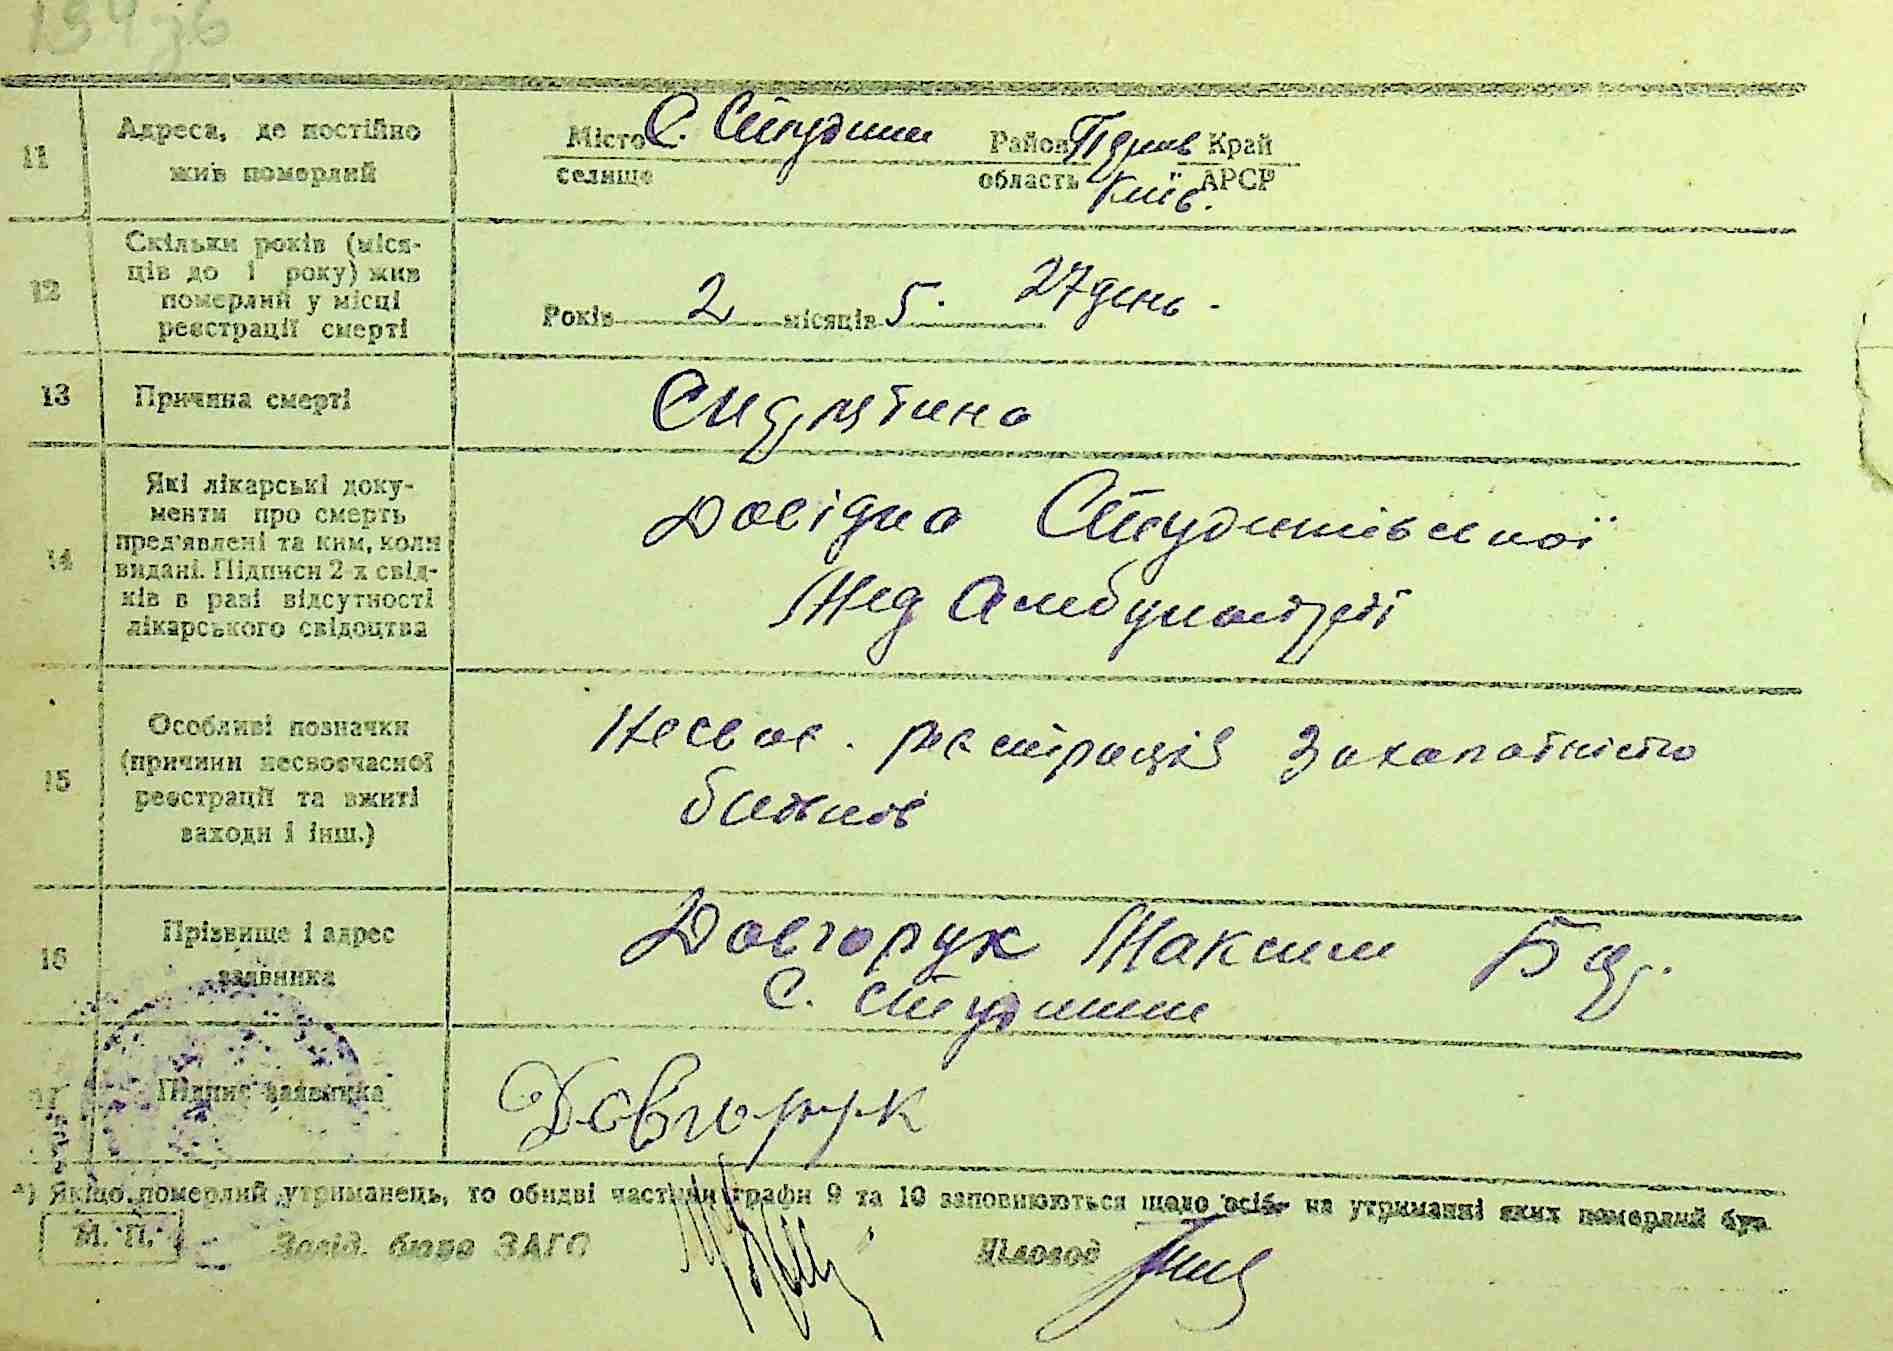 134зв
11
Адреса, де постійно
жив померлий
Місто С. Студини Район Підпив Край
селище область Київ. АРСР
12
Скільки років (міся-
ців до 1 року) жив
померлий у місці
реєстрації смерті
Років 2 місяців 5. 27 день.
13
Причина смерті
Скарлятина
14
Які лікарські доку-
менти про смерть
пред'явлені та ким, коли
видані. Підписи 2-х свід-
ків в разі відсутності
лікарського свідоцтва
Довідка
Мед Амбулаторії
15
Особливі позначки
(причини несвоєчасної
реєстрації та вжиті
заходи і інш.)
Несвоє. реєстрація Захалатністю
батьків
16
Прізвище і адрес
заявника
Довгорук Максим
с. Студини
17
Підпис заявника
Довгорук
*) Якщо померлий утриманець, то обидві частини графи 9 та 10 заповнюються щодо осіб на утриманні яких померлий був
М. П. Завід. бюро ЗАГС Діловод